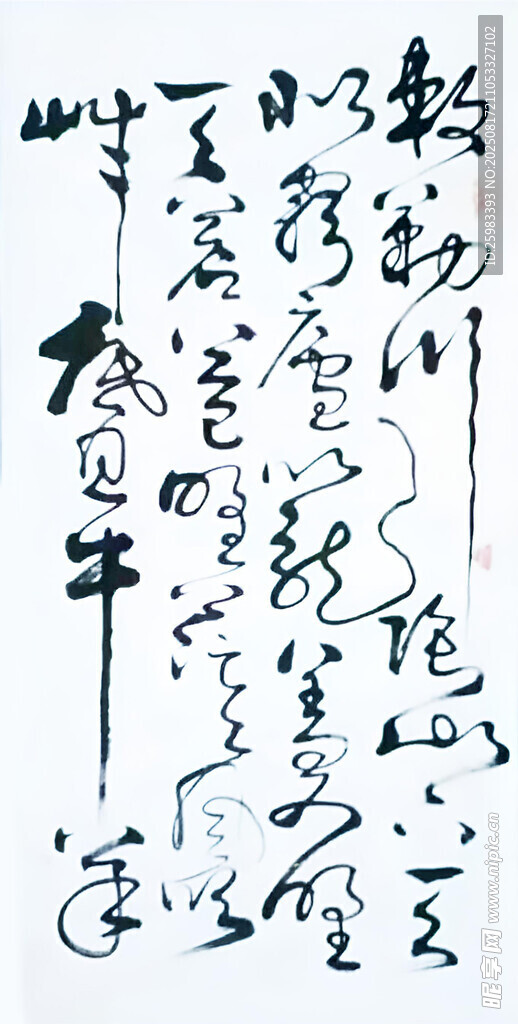 敕勒川陰山下天
似穹廬籠蓋四野
天蒼蒼野茫茫風吹
草低見牛羊
ID:25983393 NO:20250817211053327102
昵享网 www.nipic.cn